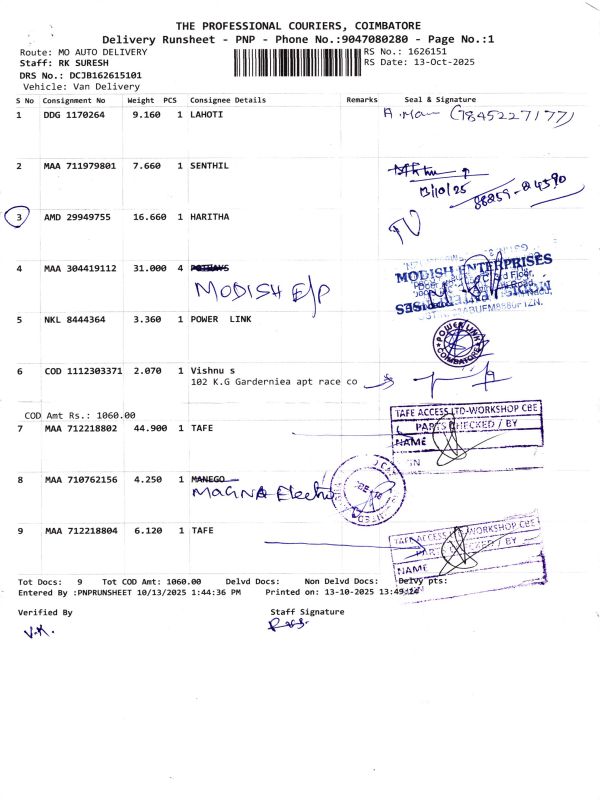 THE PROFESSIONAL COURIERS, COIMBATORE
Delivery Runsheet - PNP - Phone No.:9047080280 - Page No.:1
Route: MO AUTO DELIVERY RS No.: 1626151
Staff: RK SURESH RS Date: 13-Oct-2025
DRS No.: DCJB162615101
Vehicle: Van Delivery
S No Consignment No Weight PCS Consignee Details Remarks Seal & Signature
1 DDG 1170264 9.160 1 LAHOTI (7845227177)
2 MAA 711979801 7.660 1 SENTHIL
13/10/25 88259-24590
3 AMD 29949755 16.660 1 HARITHA
4 MAA 304419112 31.000 4 POTHAYS MODISH ENTERPRISES
MODISH E/P
5 NKL 8444364 3.360 1 POWER LINK POWER LINK COIMBATORE
6 COD 1112303371 2.070 1 Vishnu s
102 K.G Garderniea apt race co
COD Amt Rs.: 1060.00
7 MAA 712218802 44.900 1 TAFE TAFE ACCESS LTD-WORKSHOP CBE
PARTS CHECKED / BY
NAME
8 MAA 710762156 4.250 1 MANEGO
MAGNA Electro
9 MAA 712218804 6.120 1 TAFE TAFE ACCESS LTD-WORKSHOP CBE
PARTS CHECKED / BY
NAME
Tot Docs: 9 Tot COD Amt: 1060.00 Delvd Docs: Non Delvd Docs: Delvy pts:
Entered By :PNPRUNSHEET 10/13/2025 1:44:36 PM Printed on: 13-10-2025 13:49:24
Verified By Staff Signature
V.K.